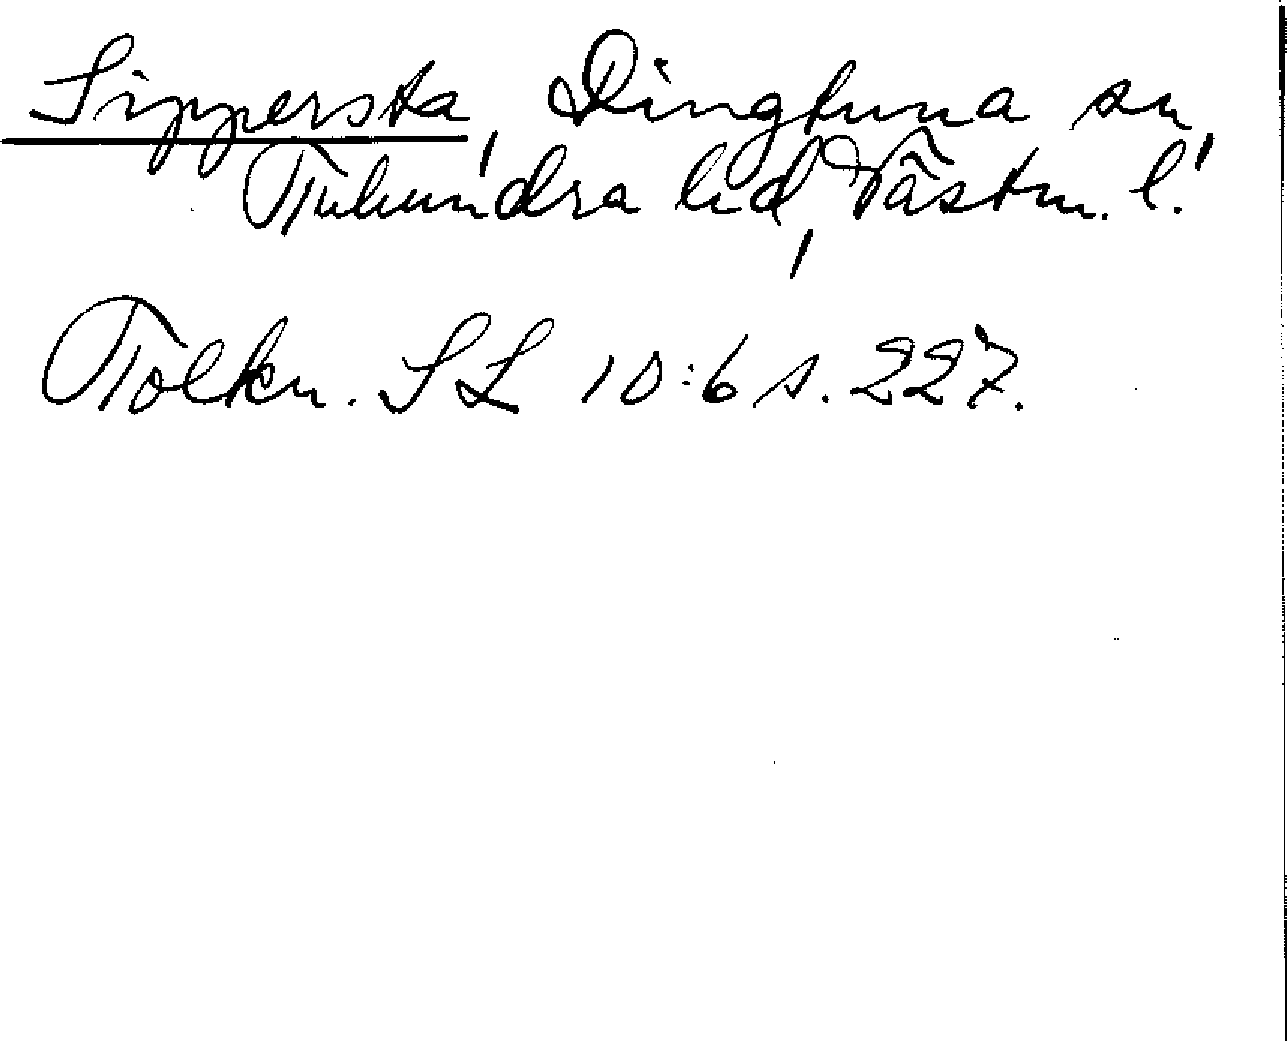 Sippersta, Dingtuna sn,
Tuhundra hd, Västm. l.
Tolkn. SL 10:6 s. 227.